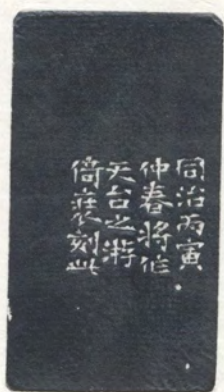 同治丙寅
仲春將作
天台之游
倚裝刻此